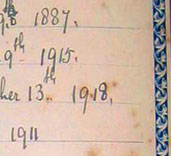 9th 1887.
9th 1915.
ber 13th 1918.
1911